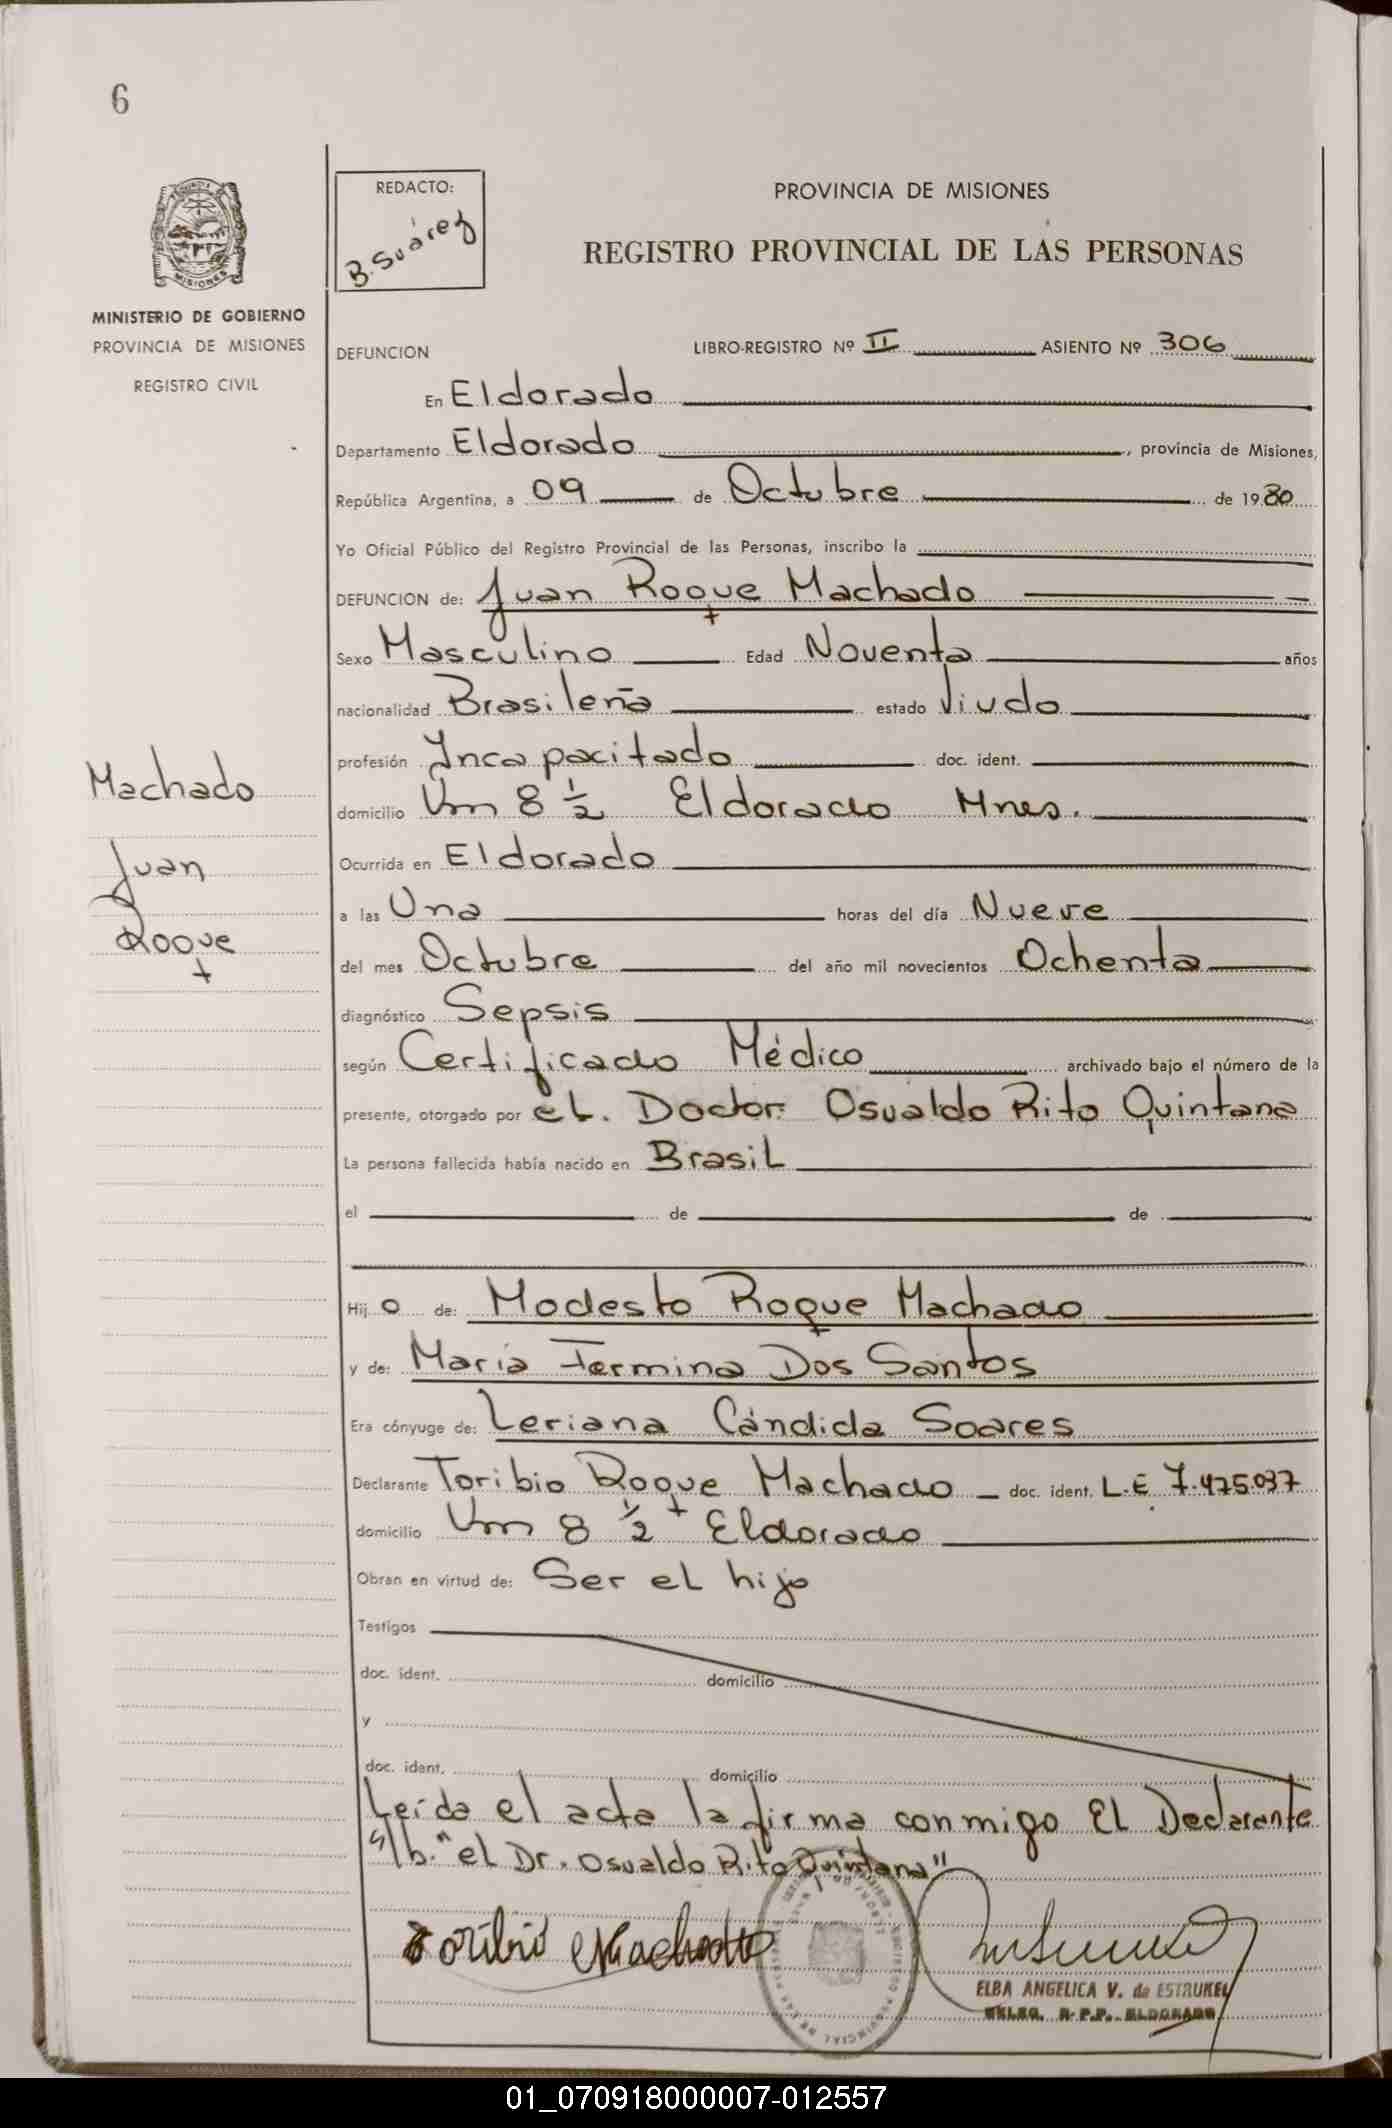 6
REDACTO:
B. Suárez
PROVINCIA DE MISIONES
REGISTRO PROVINCIAL DE LAS PERSONAS
MISIONES
MINISTERIO DE GOBIERNO
PROVINCIA DE MISIONES
REGISTRO CIVIL
DEFUNCION LIBRO-REGISTRO Nº II ASIENTO Nº 306
En Eldorado
Departamento Eldorado, provincia de Misiones,
República Argentina, a 09 de Octubre de 1980
Yo Oficial Público del Registro Provincial de las Personas, inscribo la
DEFUNCION de: Juan Roque Machado
Sexo Masculino Edad Noventa años
nacionalidad Brasileña estado Viudo
profesión Incapacitado doc. ident.
domicilio Km 8 ½ Eldorado Mnes.
Ocurrida en Eldorado
a las Una horas del día Nueve
del mes Octubre del año mil novecientos Ochenta
diagnóstico Sepsis
según Certificado Médico archivado bajo el número de la
presente, otorgado por el. Doctor Osvaldo Rito Quintana
La persona fallecida había nacido en Brasil
el de de
Hij o de: Modesto Roque Machado
y de: María Fermina Dos Santos
Era cónyuge de: Leriana Cándida Soares
Declarante Toribio Roque Machado doc. ident. L.E 7.475.037
domicilio Km 8 ½ Eldorado
Obran en virtud de: Ser el hijo
Testigos
doc. ident. domicilio
y
doc. ident. domicilio
Leída el acta la firma conmigo El Declarante
"el Dr. Osvaldo Rito Quintana"
Toribio Machado
ELBA ANGELICA V. de ESTRUKEL
DELEG. R.P.P. ELDORADO
Machado
Juan
Roque
01_070918000007-012557